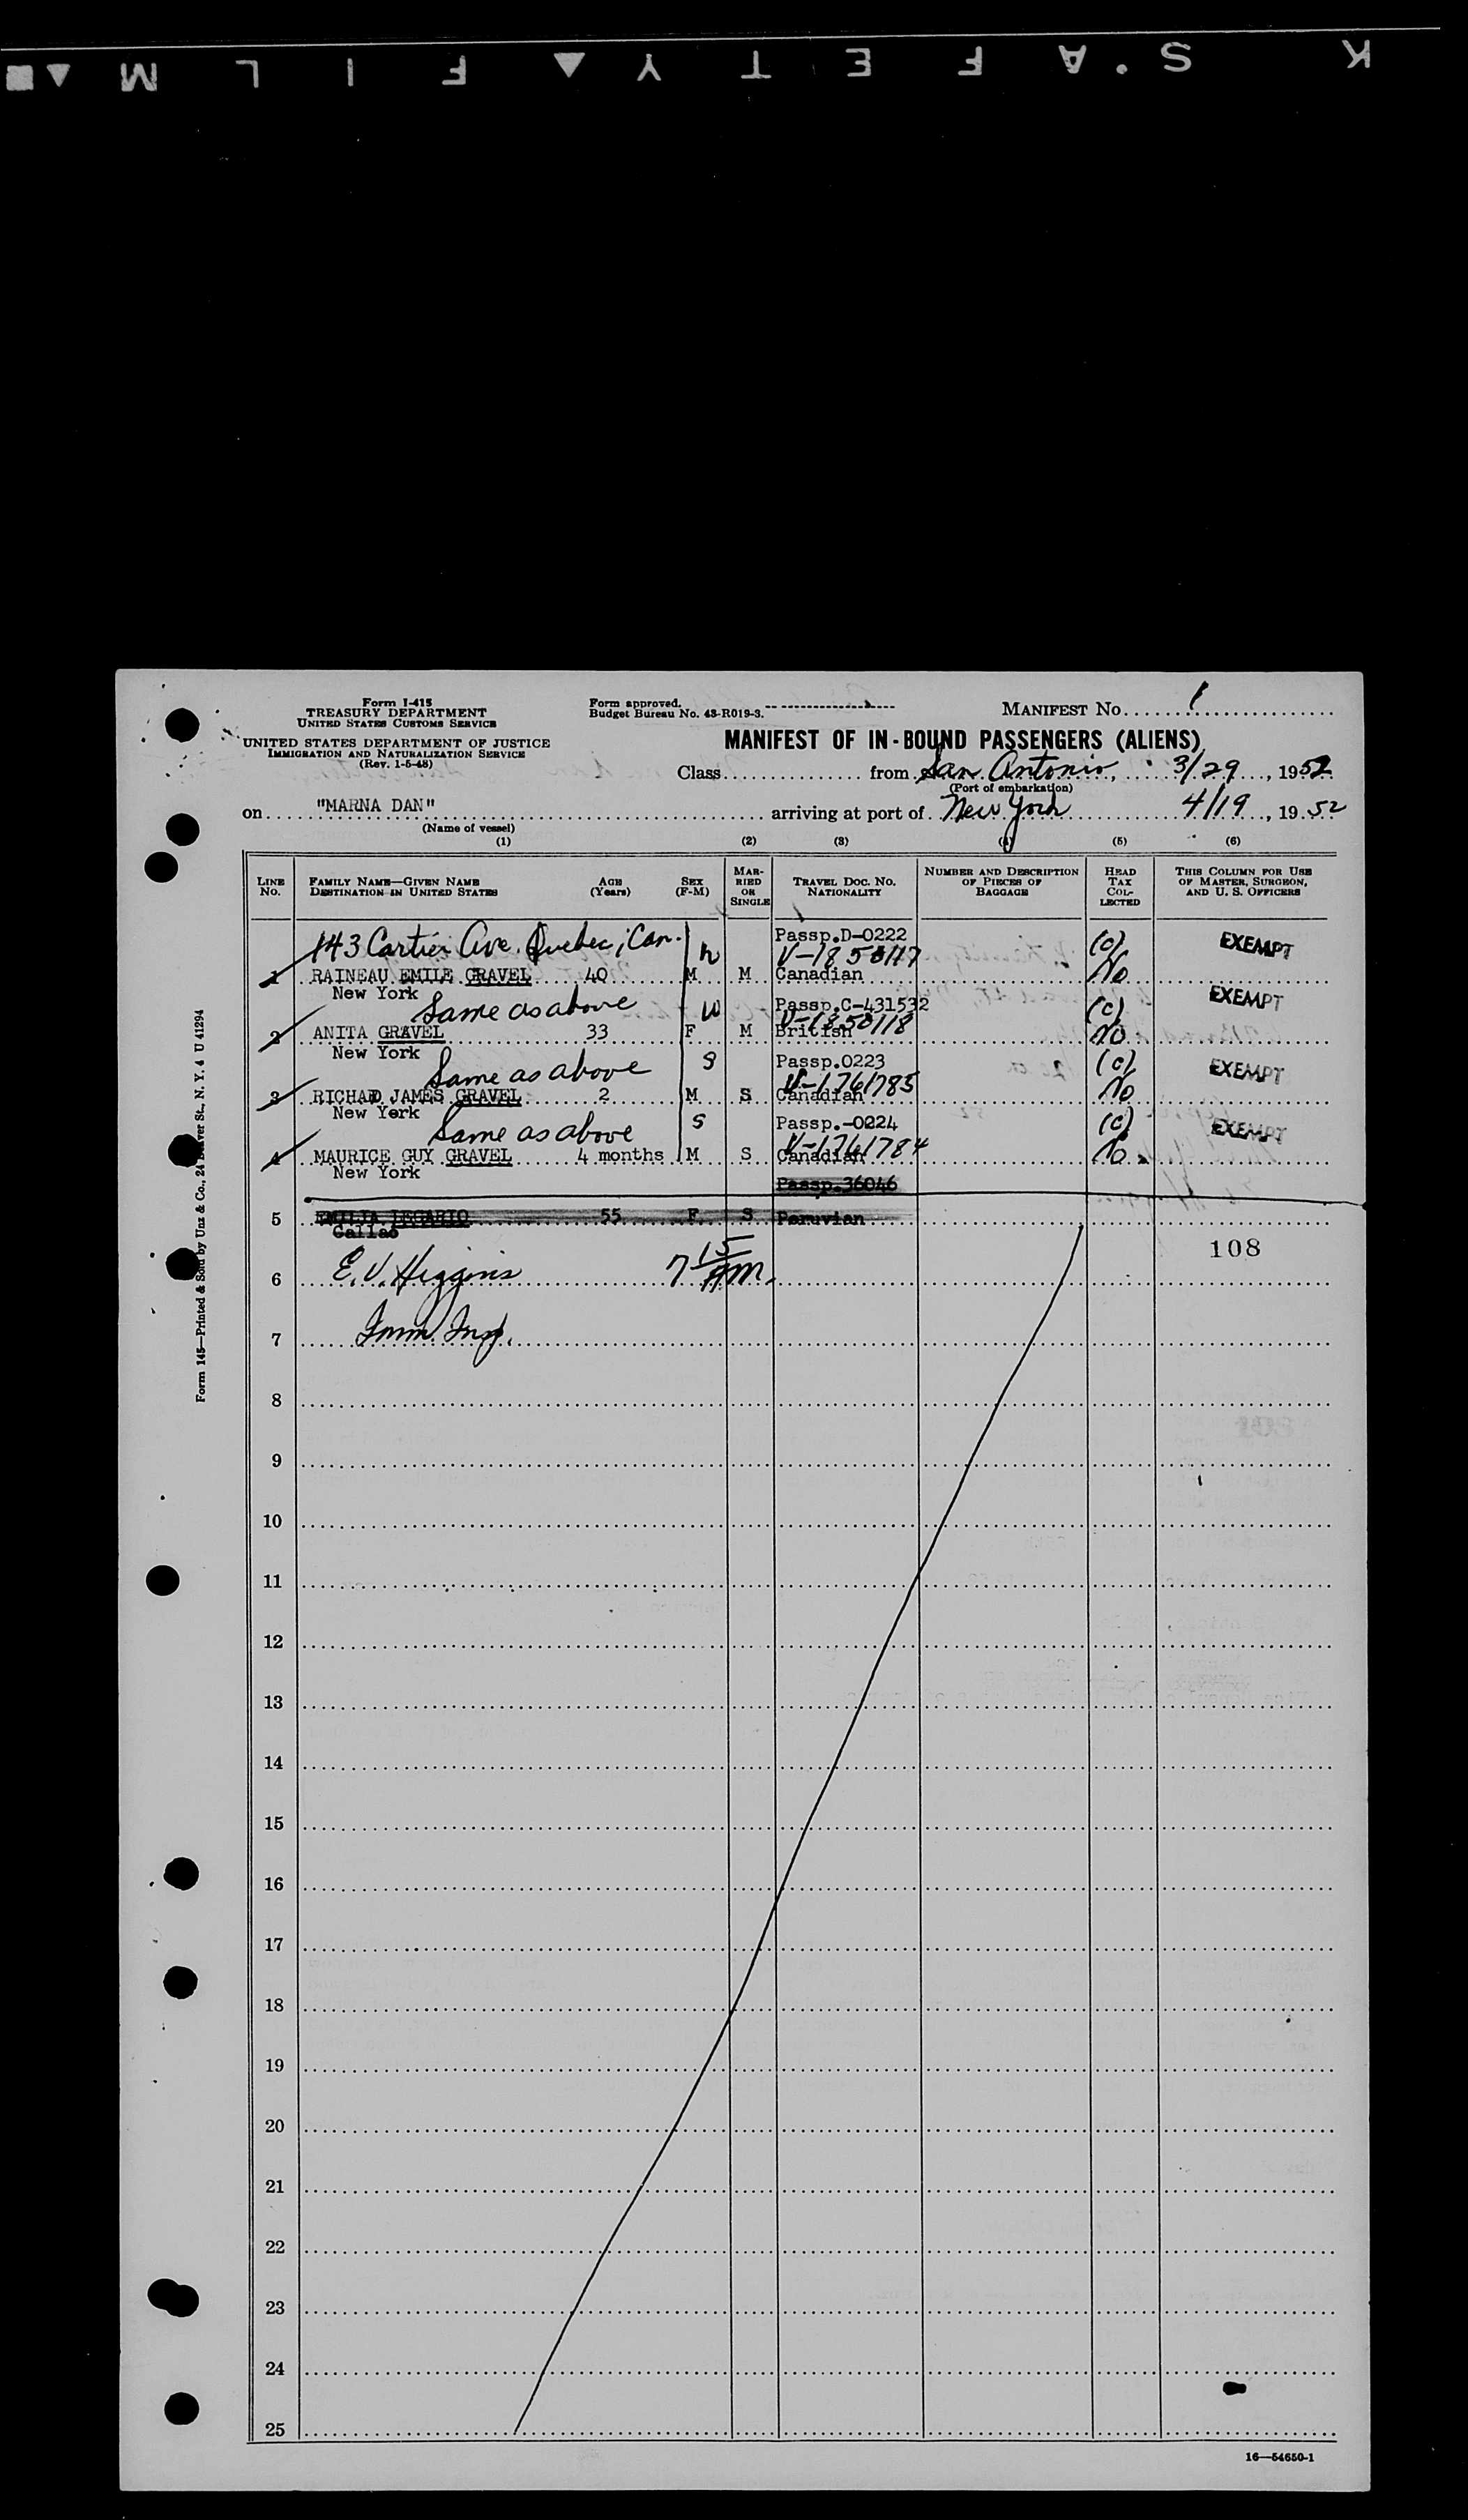 K S • A F E T Y ▲ F I L M ▲ ■
Form I-415
TREASURY DEPARTMENT
UNITED STATES CUSTOMS SERVICE
UNITED STATES DEPARTMENT OF JUSTICE
IMMIGRATION AND NATURALIZATION SERVICE
(Rev. 1-5-48)
Form approved.
Budget Bureau No. 43-R019-3.
MANIFEST NO. 1
MANIFEST OF IN-BOUND PASSENGERS (ALIENS)
Class from San Antonio, 3/29, 1952
(Port of embarkation)
on "MARNA DAN" arriving at port of New York 4/19, 1952
(Name of vessel)
(1) (2) (3) (4) (5) (6)
LINE NO.
FAMILY NAME—GIVEN NAME
DESTINATION IN UNITED STATES
AGE (Years)
SEX (F-M)
MARRIED OR SINGLE
TRAVEL DOC. NO. NATIONALITY
NUMBER AND DESCRIPTION OF PIECES OF BAGGAGE
HEAD TAX COLLECTED
THIS COLUMN FOR USE OF MASTER, SURGEON, AND U. S. OFFICERS
143 Cartier Ave. Quebec, Can. Passp.D-0222 (c) EXEMPT
V-1850117
1 RAINEAU EMILE GRAVEL 40 M M Canadian No
New York
Same as above W Passp.C-431532 (c) EXEMPT
V-1850118
2 ANITA GRAVEL 33 F M British No
New York
Same as above S Passp.0223 (c) EXEMPT
V-1761785
3 RICHAD JAMES GRAVEL 2 M S Canadian No
New York
Same as above S Passp.-0224 (c) EXEMPT
V-1761784
4 MAURICE GUY GRAVEL 4 months M S Canadian No
New York
Passp.36046
5 EMILIA LEGARIO 55 F S Peruvian
Callao
108
6 E. V. Higgins 7 15 AM.
7 Imm. Insp.
8
9
10
11
12
13
14
15
16
17
18
19
20
21
22
23
24
25
16—54650-1
Form 145—Printed & Sold by Unz & Co., 24 Beaver St., N. Y. 4 U 41294